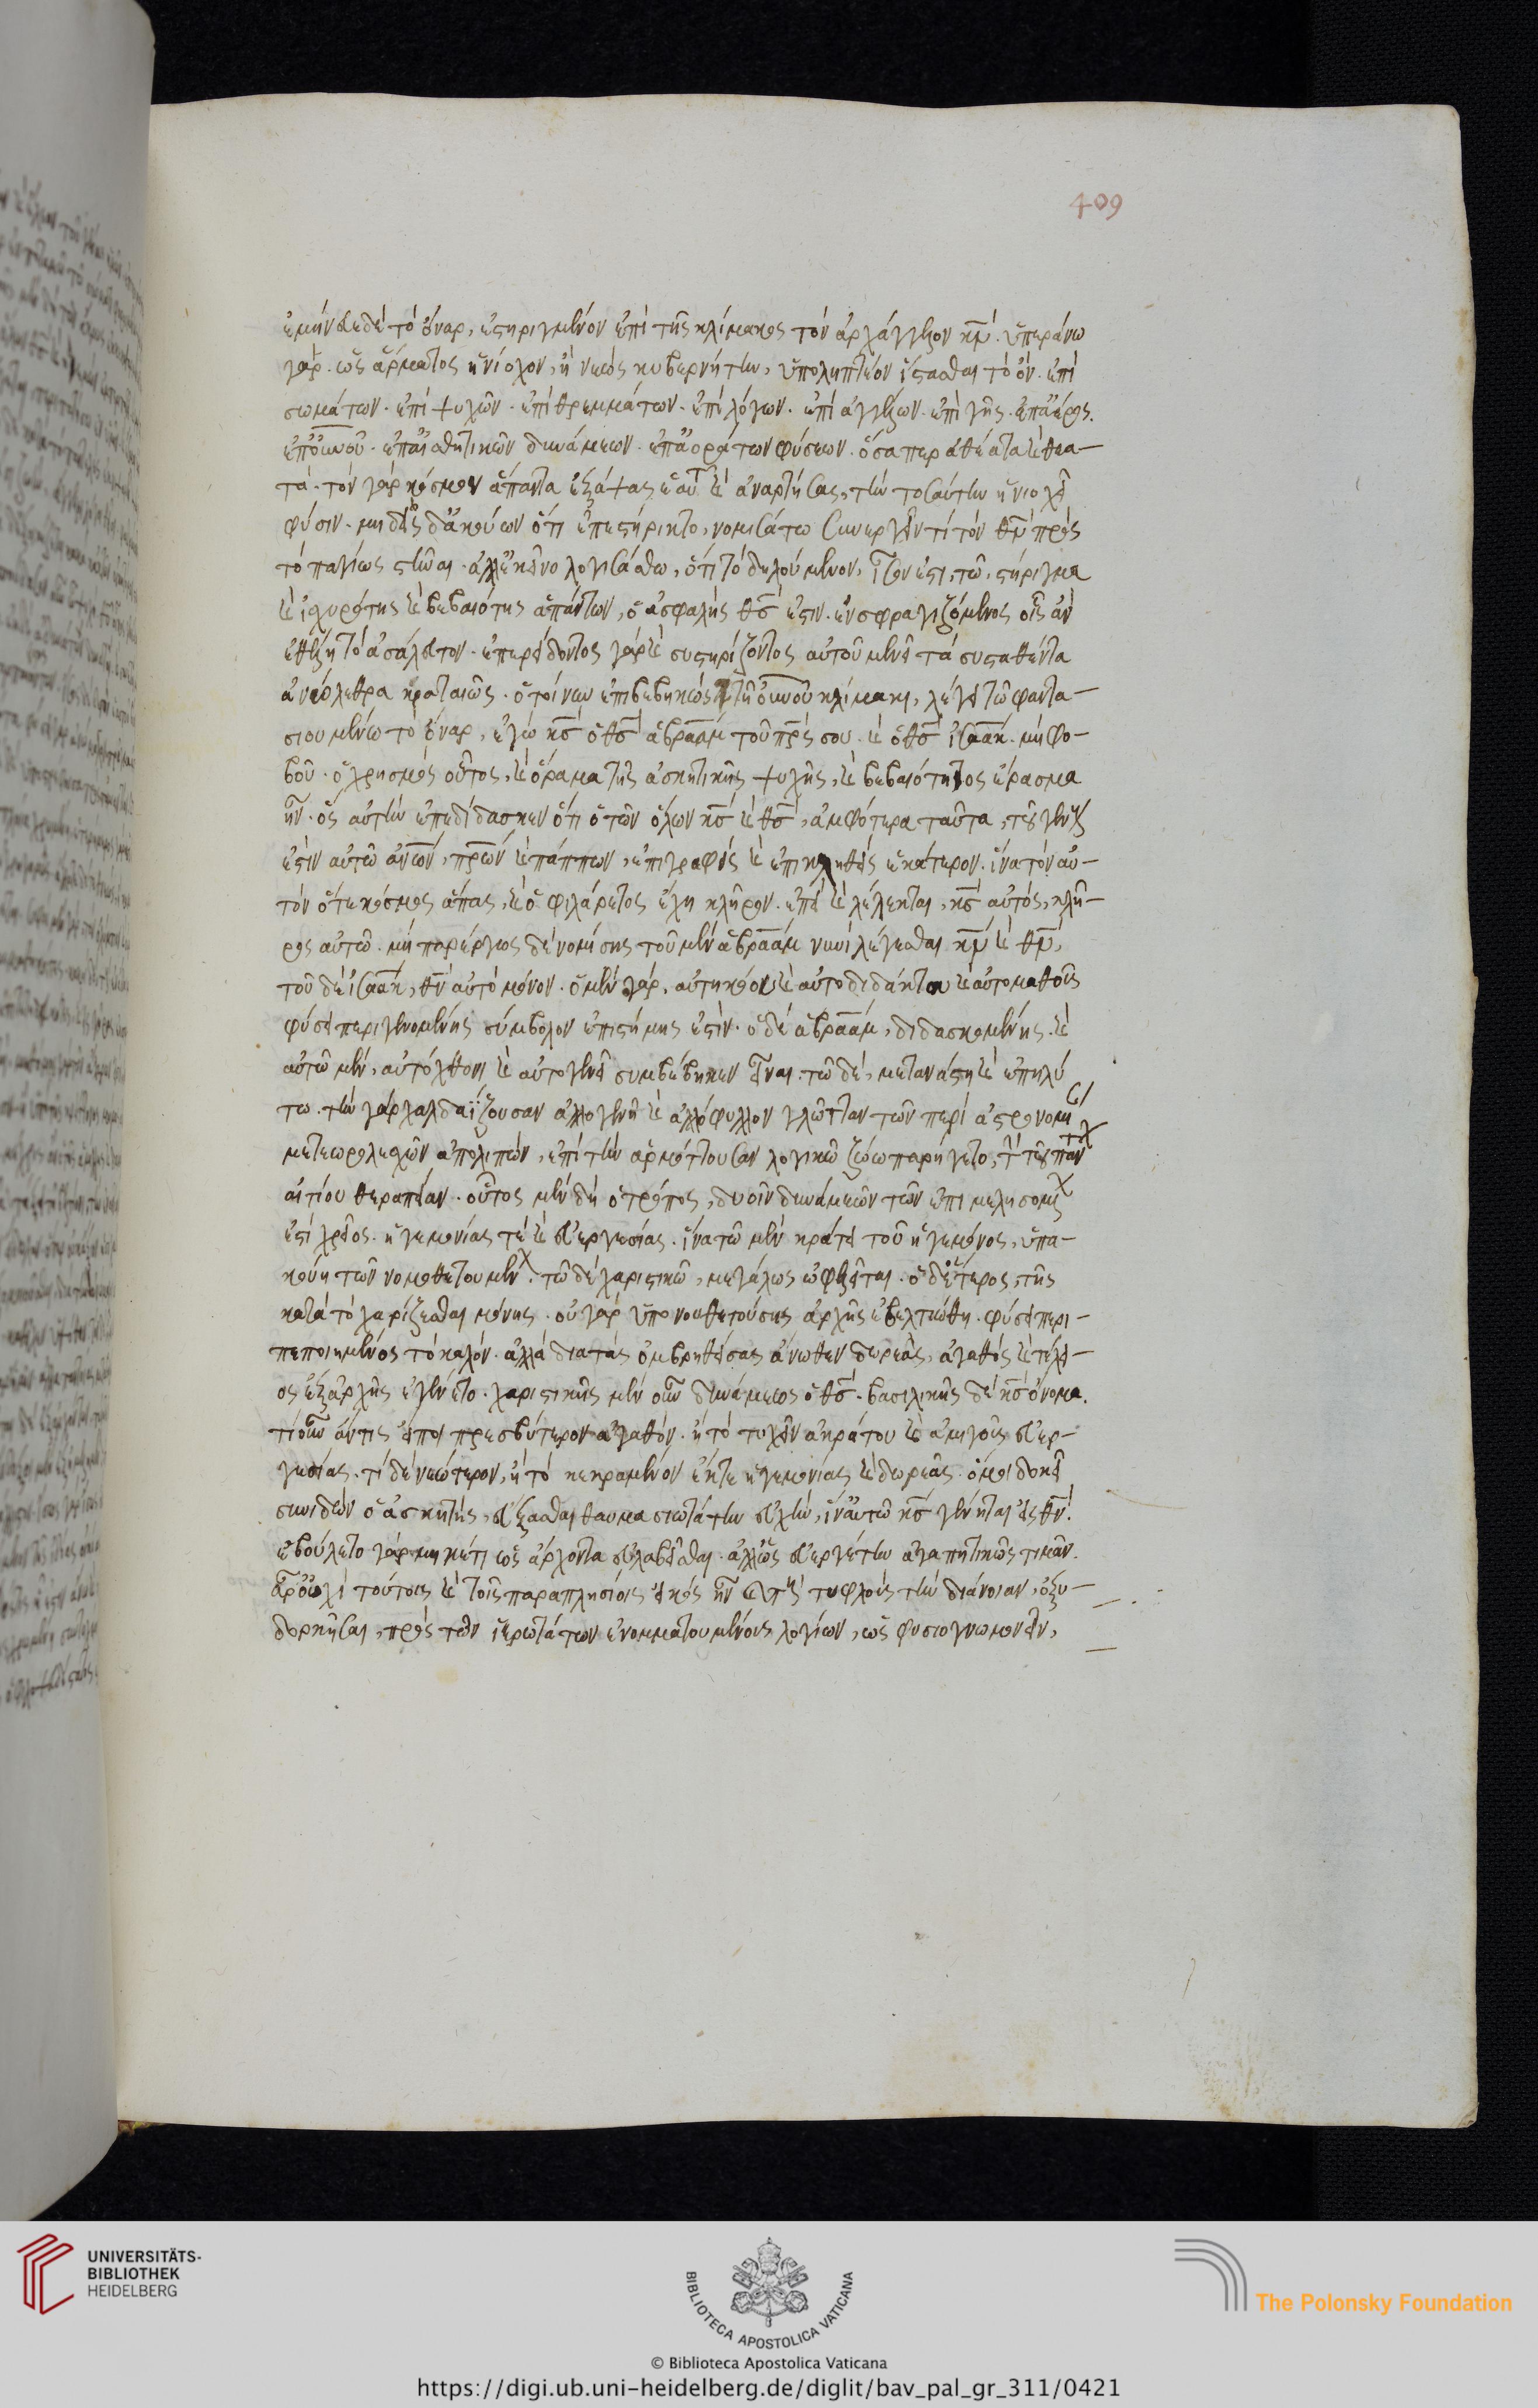 ἐμήνυε δὲ τὸ ὄναρ, ἐστηριγμένον ἐπὶ τῆς κλίμακος τὸν ἀρχάγγελον κν̅. ὑπεράνω
γὰρ. ὡς ἅρματος ἡνίοχον, ἢ νεὼς κυβερνήτην, ὑποληπτέον ἵστασθαι τὸ ὄν. ἐπὶ
σωμάτων. ἐπὶ ψυχῶν. ἐπὶ θρεμμάτων. ἐπὶ λόγων. ἐπὶ ἀγγέλων. ἐπὶ γῆς. ἐπ' ἀέρος.
ἐπ' οὐν̅οῦ. ἐπ' αἰσθητικῶν δυνάμεων. ἐπ' ἀοράτων φύσεων. ὅσα περ ἀθέατα καὶ θεα-
τά. τὸν γὰρ κόσμον ἅπαντα ἐξάψας ἑαυτ καὶ ἀναρτήσας, τὴν τοσαύτην ἡνιοχεῖ
φύσιν. μηδεὶς δ' ἀκούων ὅτι ἐπεστήρικτο, νομισάτω συνεργεῖν τι τὸν θν̅ πρὸς
τὸ παγίως στῆναι. ἀλλ' ἐκεῖνο λογισάσθω, ὅτι τὸ δηλούμενον, ἴσον ἐστι, τῶ, στήριγμα
καὶ ἰσχυρότης καὶ βεβαιότης ἁπάντων, ὁ ἀσφαλὴς θς̅ ἐστιν. ἐνσφραγιζόμενος οἷς ἂν
ἐθέλη τὸ ἀσάλευτον. ἐπερείδοντος γὰρ καὶ συστηρίζοντος αὐτοῦ μένει τὰ συσταθέντα
ἀνώλεθρα κραταιῶς. ὁ τοίνυν ἐπιβεβηκὼς τῆ οὐν̅οῦ κλίμακι, λέγει τῶ φαντα-
σιουμένω τὸ ὄναρ, ἐγὼ κς̅ ὁ θς̅ ἀβραὰμ τοῦ πρ̅ς σου. καὶ ὁ θς̅ ἰσαάκ. μὴ φο-
βοῦ. ὁ χρησμὸς οὗτος, καὶ ὅραμα τῆς ἀσκητικῆς ψυχῆς, καὶ βεβαιότητος ἔρασμα
ἦν. ὃς αὐτὴν ἐπεδίδασκεν ὅτι ὁ τῶν ὅλων κς̅ καὶ θς̅, ἀμφότερα ταῦτα, τοῦ γένους
ἐστὶν αὐτῶ ἀν̅ων, πρ̅ων καὶ πάππων, ἐπιγραφεὶς καὶ ἐπικληθεὶς ἑκάτερον. ἵνα τὸν αὐ-
τὸν ὅ τε κόσμος ἅπας, καὶ ὁ φιλάρετος ἔχη κλῆρον. ἐπεὶ καὶ λέλεκται, κς̅ αὐτός, κλῆ-
ρος αὐτῶ. μὴ παρέργως δὲ νομίσης τοῦ μὲν ἀβραὰμ νυνὶ λέγεσθαι κν̅ καὶ θν̅,
τοῦ δὲ ἰσαάκ, θν̅ αὐτὸ μόνον. ὁ μὲν γάρ, αὐτηκόου καὶ αὐτοδιδάκτου καὶ αὐτομαθοῦς
φύσει περιγενομένης σύμβολον ἐπιστήμης ἐστίν. ὁ δὲ ἀβραάμ, διδασκομένης. καὶ
αὐτῶ μέν, αὐτόχθονι καὶ αὐτογενεῖ συμβέβηκεν εἶναι. τῶ δέ, μετανάστη καὶ ἐπηλύ
τω. τὴν γὰρ χαλδαΐζουσαν ἀλλογενῆ καὶ ἀλλόφυλλον γλῶτταν τῶν περὶ ἀστρονομί
μετεωρολεσχῶν ἀπολιπών, ἐπὶ τὴν ἁρμόττουσαν λογικῶ ζώω παρήγετο, τὴν τοῦ πάντ
αἰτίου θεραπείαν. οὗτος μὲν δὴ ὁ τρόπος, δυοῖν δυνάμεων τῶν ἐπιμελησομ
ἐστὶ χρεῖος. ἡγεμονίας τὲ καὶ εὐεργεσίας. ἵνα τῶ μὲν κράτει τοῦ ἡγεμόνος, ὑπα-
κούη τῶν νομοθετουμέν. τῶ δὲ χαριστικῶ, μεγάλως ὠφελεῖται. ὁ δ' ἕτερος, τῆς
κατὰ τὸ χαρίζεσθαι μόνης. οὐ γὰρ ὑπὸ νουθετούσης ἀρχῆς ἐβελτιώθη. φύσει περι-
πεποιημένος τὸ καλόν. ἀλλὰ διὰ τὰς ὀμβρηθείσας ἄνωθεν δωρεάς, ἀγαθὸς καὶ τέλει-
ος ἐξ ἀρχῆς ἐγένετο. χαριστικῆς μὲν οὖν δυνάμεως ὁ θς̅. βασιλικῆς δὲ κς̅ ὄνομα.
τί οὖν ἄν τις εἴποι πρεσβύτερον ἀγαθόν. ἢ τὸ τυχεῖν ἀκράτου καὶ ἀμιγοῦς εὐερ-
γεσίας. τί δὲ νεώτερον, ἢ τὸ κεκραμένον ἔκ τε ἡγεμονίας καὶ δωρεᾶς. ὅ μοι δοκεῖ
συνιδὼν ὁ ἀσκητής, εὔξασθαι θαυμασιωτάτην εὐχήν, ἵν' αὐτῶ κς̅ γένηται εἰς θν̅.
ἐβούλετο γὰρ μηκέτι ὡς ἄρχοντα εὐλαβεῖσθαι. ἀλλ' ὡς εὐεργέτην ἀγαπητικῶς τιμᾶν.
ἆρ' οὐχὶ τούτοις καὶ τοῖς παραπλησίοις εἰκὸς ἦν καὶ τοὺς τυφλοὺς τὴν διάνοιαν, ὀξυ-
δορκῆσαι, πρὸς τῶν ἱερωτάτων ἐνομματουμένοις λογίων, ὡς φυσιογνωμονεῖν,
409
UNIVERSITÄTS-
BIBLIOTHEK
HEIDELBERG
BIBLIOTECA APOSTOLICA VATICANA
The Polonsky Foundation
© Biblioteca Apostolica Vaticana
https://digi.ub.uni-heidelberg.de/diglit/bav_pal_gr_311/0421